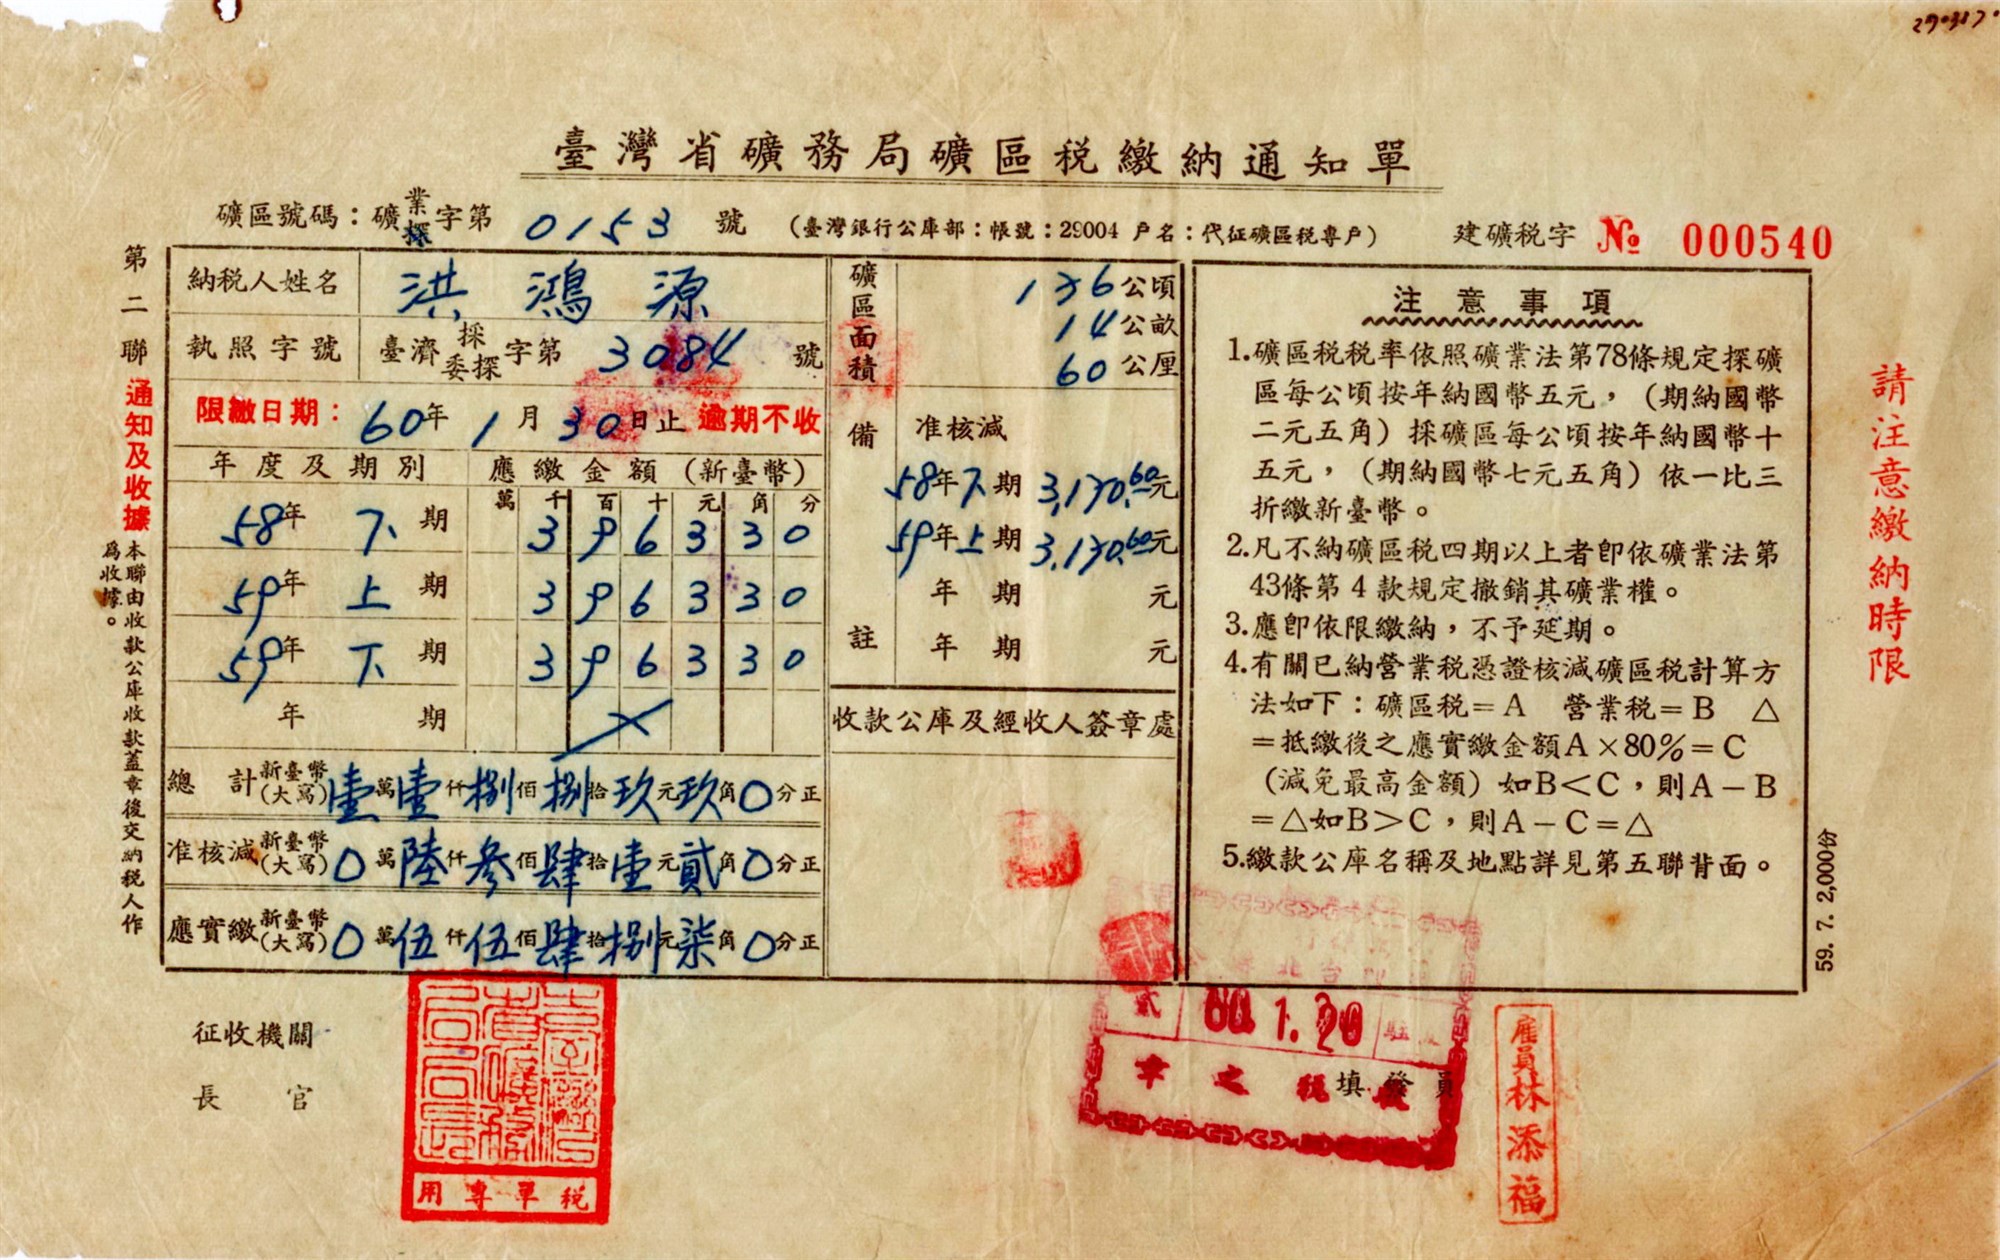 臺灣省礦務局礦區稅繳納通知單
礦區號碼：礦業探字第 0153 號 (臺灣銀行公庫部：帳號：29004 戶名：代征礦區稅專戶) 建礦稅字 № 000540
第二聯 通知及收據 本聯由收款公庫收款蓋章後交納稅人作為收據。
納稅人姓名 洪鴻源
執照字號 臺濟採委探字第 3084 號
限繳日期：60年1月30日止 逾期不收
年度及期別 應繳金額 (新臺幣)
萬 千 百 十 元 角 分
58年下期 3 9 6 3 3 0
59年上期 3 9 6 3 3 0
59年下期 3 9 6 3 3 0
年 期
總計 新臺幣(大寫) 壹萬壹仟捌佰捌拾玖元玖角0分正
准核減 新臺幣(大寫) 0萬陸仟參佰肆拾壹元貳角0分正
應實繳 新臺幣(大寫) 0萬伍仟伍佰肆拾捌元柒角0分正
礦區面積 176公頃
14公畝
60公厘
備註 准核減
58年下期 3,170.60元
59年上期 3,170.60元
年 期 元
年 期 元
收款公庫及經收人簽章處
注意事項
1.礦區稅稅率依照礦業法第78條規定探礦
區每公頃按年納國幣五元，(期納國幣
二元五角) 採礦區每公頃按年納國幣十
五元，(期納國幣七元五角) 依一比三
折繳新臺幣。
2.凡不納礦區稅四期以上者卽依礦業法第
43條第4款規定撤銷其礦業權。
3.應卽依限繳納，不予延期。
4.有關已納營業稅憑證核減礦區稅計算方
法如下：礦區稅＝A 營業稅＝B △
＝抵繳後之應實繳金額A×80%＝C
(減免最高金額) 如B＜C，則A－B
＝△如B＞C，則A－C＝△
5.繳款公庫名稱及地點詳見第五聯背面。
請注意繳納時限
59. 7. 2,000份
征收機關
長官
臺灣省礦務局局長
稅單專用
60. 1. 20
填發員
雇員林添福